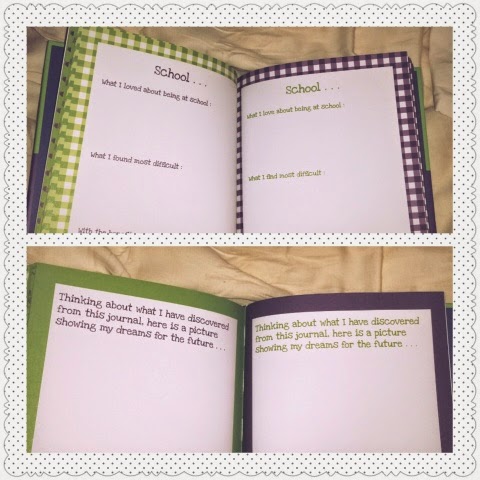 School . . .
What I loved about being at school :
What I found most difficult :
School . . .
What I love about being at school :
What I find most difficult :
Thinking about what I have discovered
from this journal, here is a picture
showing my dreams for the future . . . .
Thinking about what I have discovered
from this journal, here is a picture
showing my dreams for the future . . . .